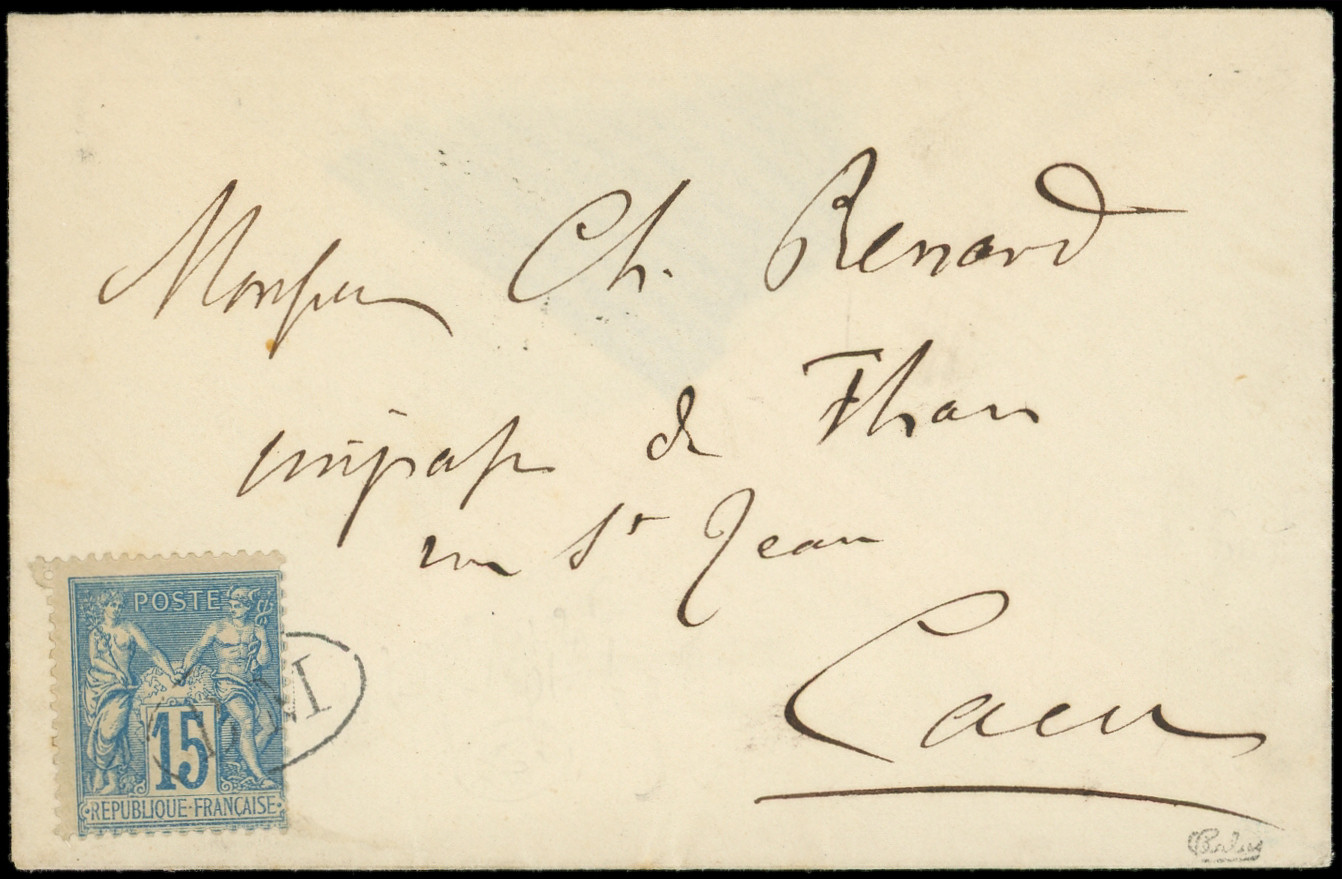 Monsieur Ch. Renard
impasse de Than
rue St Jean
Caen
POSTE
15
REPUBLIQUE·FRANÇAISE